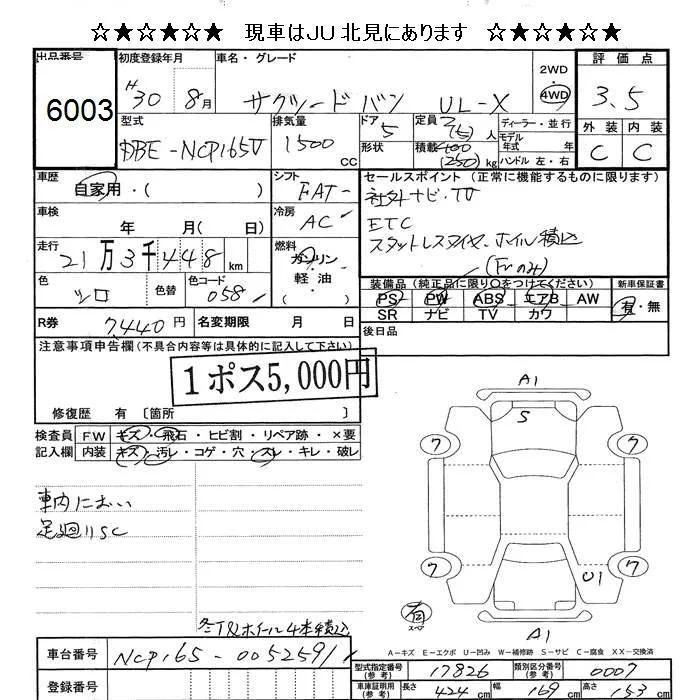 ☆★☆★☆☆ 現車はJU 北見にあります ☆★☆★☆☆
出品番号 初度登録年月 車名・グレード 2WD 4WD 評価点
6003 H30 8月 サクシードバン UL-X 3.5
型式 排気量 ドア 定員 ディーラー・並行 外装 内装
DBE-NCP165V 1500 CC 5 2(5)人 モデル年式 C C
形状 積載 400(250)kg ハンドル 左・右
車歴 シフト セールスポイント(正常に機能するものに限ります)
自家用・( ) FAT- 社外ナビ・TV
車検 年 月( ) 冷房 AC ETC
走行 21万3千448km 燃料 ガソリン・軽油 スタットレスタイヤ・ホイル積込
(Frのみ)
色 シロ 色替 色コード 058 装備品(純正品に限り○をつけてください) 新車保証書
PS PW ABS エアB AW 有・無
SR ナビ TV カワ
R券 7,440円 名変期限 月 日 後日品
注意事項申告欄(不具合内容等は具体的に記入して下さい)
1ポス5,000円
修復歴 有〔箇所 〕
検査員 FW キズ・飛石・ヒビ割・リペア跡・×要
記入欄 内装 キズ・汚レ・コゲ・穴・スレ・キレ・破レ
A1
S
7 7
車内におい
足廻りSC
7 7
U1
有 スペア
冬T&ホイール4本積込
A1
A-キズ E-エクボ U-凹み W-補修跡 S-サビ C-腐食 XX-交換済
車台番号 NCP165-0052591
型式指定番号(参考) 17826 類別区分番号(参考) 0007
登録番号 車庫証明用(参考) 長さ 424cm 幅 169cm 高さ 153cm